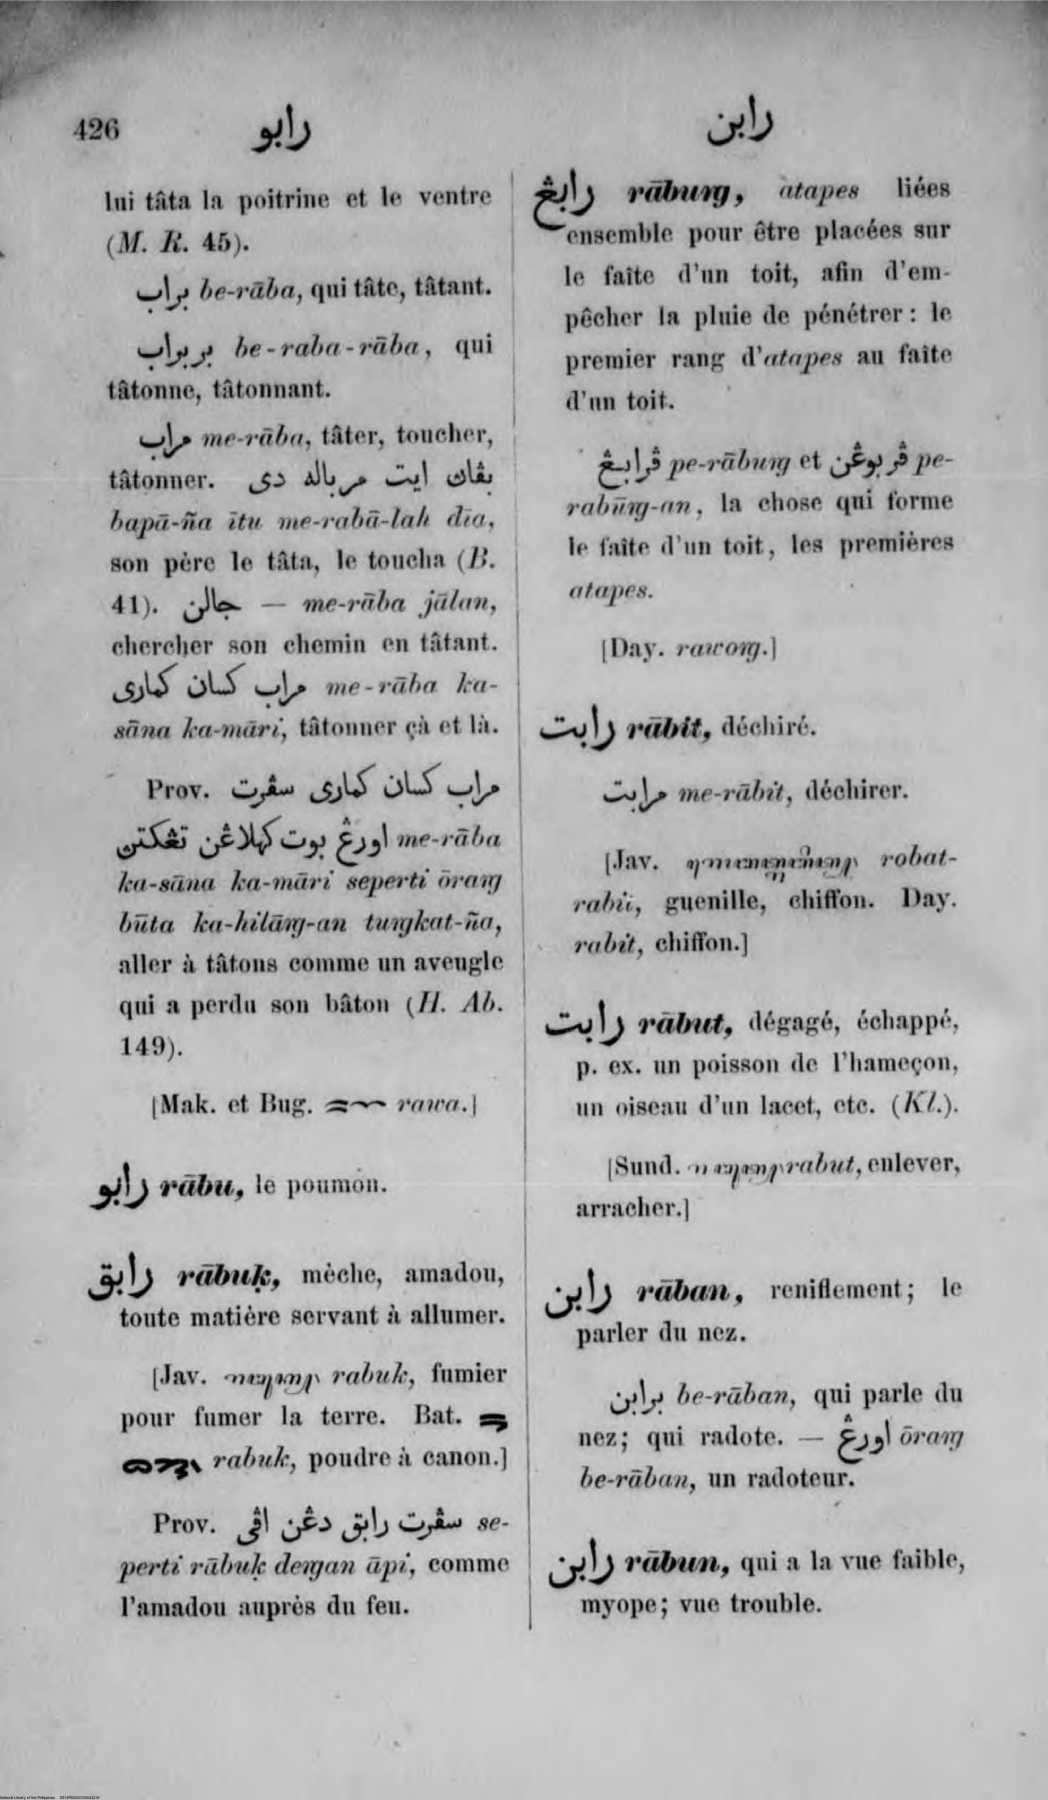 426
رابو
رابن
lui tâta la poitrine et le ventre
(M. R. 45).
براب be-rāba, qui tâte, tâtant.
بربراب be-raba-rāba, qui
tâtonne, tâtonnant.
مراب me-rāba, tâter, toucher,
tâtonner. بڤاڽ ايت مرباله دي
bapā-ña ītu me-rabā-lah dīa,
son père le tâta, le toucha (B.
41). جالن — me-rāba jālan,
chercher son chemin en tâtant.
مراب كسان كماري me-rāba ka-
sāna ka-māri, tâtonner çà et là.
Prov. مراب كسان كماري سڤرت
اورڠ بوت كهلاڠن تڠكتن me-rāba
ka-sāna ka-māri seperti ōraŋ
būta ka-hilāŋ-an tuŋkat-ña,
aller à tâtons comme un aveugle
qui a perdu son bâton (H. Ab.
149).
[Mak. et Bug. rawa.]
رابو rābu, le poumon.
رابق rābuḳ, mèche, amadou,
toute matière servant à allumer.
[Jav. rabuk, fumier
pour fumer la terre. Bat.
rabuk, poudre à canon.]
Prov. سڤرت رابق دڠن اڤي se-
perti rābuḳ deŋan āpi, comme
l'amadou auprès du feu.
رابڠ rābuŋ, atapes liées
ensemble pour être placées sur
le faîte d'un toit, afin d'em-
pêcher la pluie de pénétrer: le
premier rang d'atapes au faîte
d'un toit.
ڤرابڠ pe-rābuŋ et ڤربوڠن pe-
rabūŋ-an, la chose qui forme
le faîte d'un toit, les premières
atapes.
[Day. rawoŋ.]
رابت rābit, déchiré.
مرابت me-rābit, déchirer.
[Jav. robat-
rabit, guenille, chiffon. Day.
rabit, chiffon.]
رابت rābut, dégagé, échappé,
p. ex. un poisson de l'hameçon,
un oiseau d'un lacet, etc. (Kl.).
[Sund. rabut, enlever,
arracher.]
رابن rāban, reniflement; le
parler du nez.
برابن be-rāban, qui parle du
nez; qui radote. — اورڠ ōraŋ
be-rāban, un radoteur.
رابن rābun, qui a la vue faible,
myope; vue trouble.